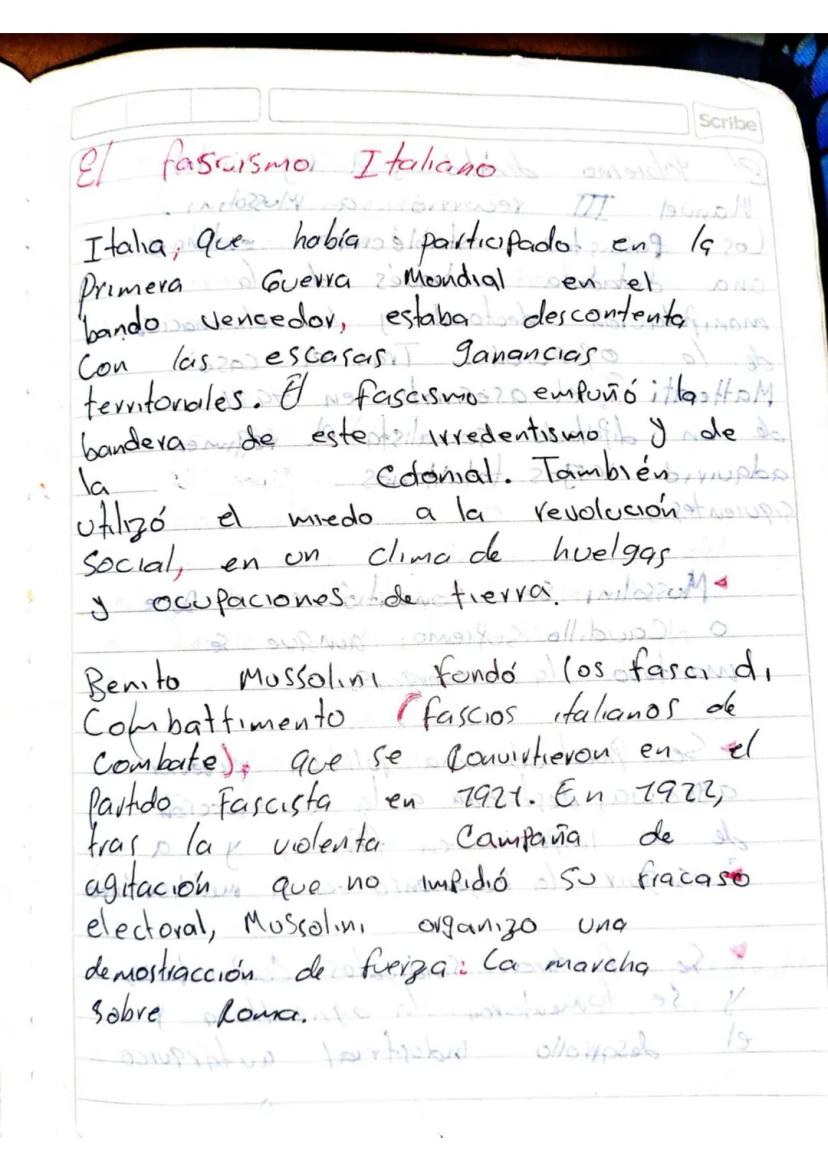 Scribe
El fascismo Italiano
Italia, que había participado en la
Primera Guerra Mondial en el
bando vencedor, estaba descontenta
Con las escasas ganancias
territoriales. El fascismo empuñó la
bandera de este irredentismo y de
la Colonial. También
utilizó el miedo a la revolución
Social, en un clima de huelgas
y ocupaciones de tierra.
Benito Mussolini fondó los fasci di
Combattimento (fascios italianos de
Combate), que se Convirtieron en el
Partido Fascista en 1921. En 1922,
tras la violenta Campaña de
agitación que no impidió su fracaso
electoral, Mussolini organizo una
demostracción de fuerza: La marcha
sobre Roma.